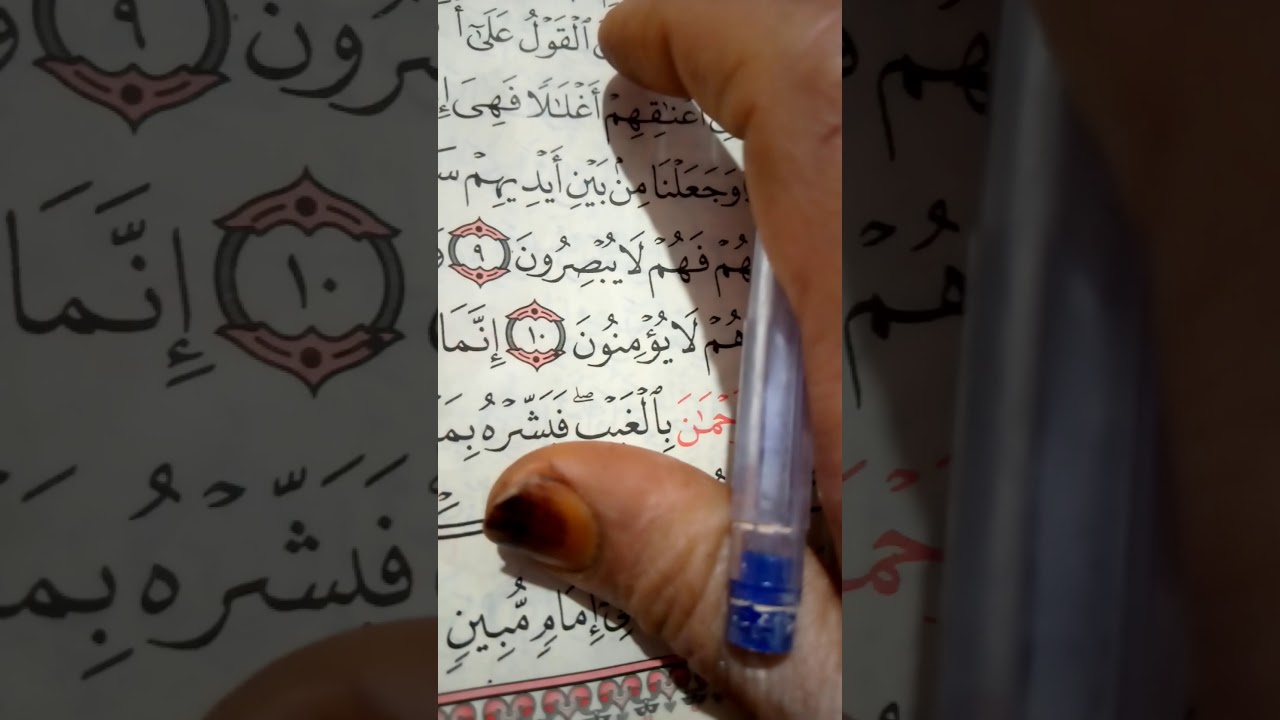 ٱلۡقَوۡلُ عَلَىٰٓ
أَعۡنَٰقِهِمۡ أَغۡلَٰلٗا فَهِيَ
وَجَعَلۡنَا مِنۢ بَيۡنِ أَيۡدِيهِمۡ
فَهُمۡ لَا يُبۡصِرُونَ ٩
لَا يُؤۡمِنُونَ ١٠ إِنَّمَا
بِٱلۡغَيۡبِۖ فَبَشِّرۡهُ
إِمَامٖ مُّبِينٖ